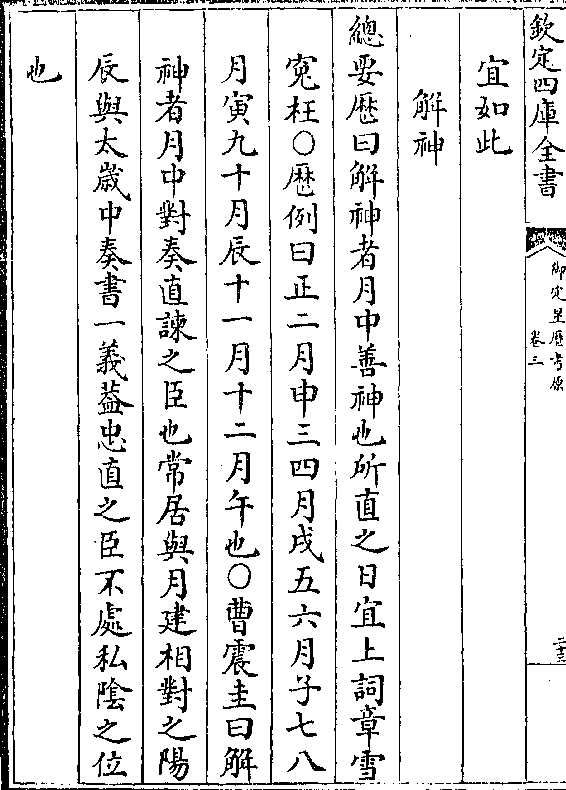 欽定四庫全書
御定星歷考原
卷三
二十三
宜如此
解神
總要歷曰解神者月中善神也所直之日宜上詞章雪
寃枉○歷例曰正二月申三四月戌五六月子七八
月寅九十月辰十一月十二月午也○曹震圭曰解
神者月中對奏直諫之臣也常居與月建相對之陽
辰與太歲中奏書一義蓋忠直之臣不處私陰之位
也